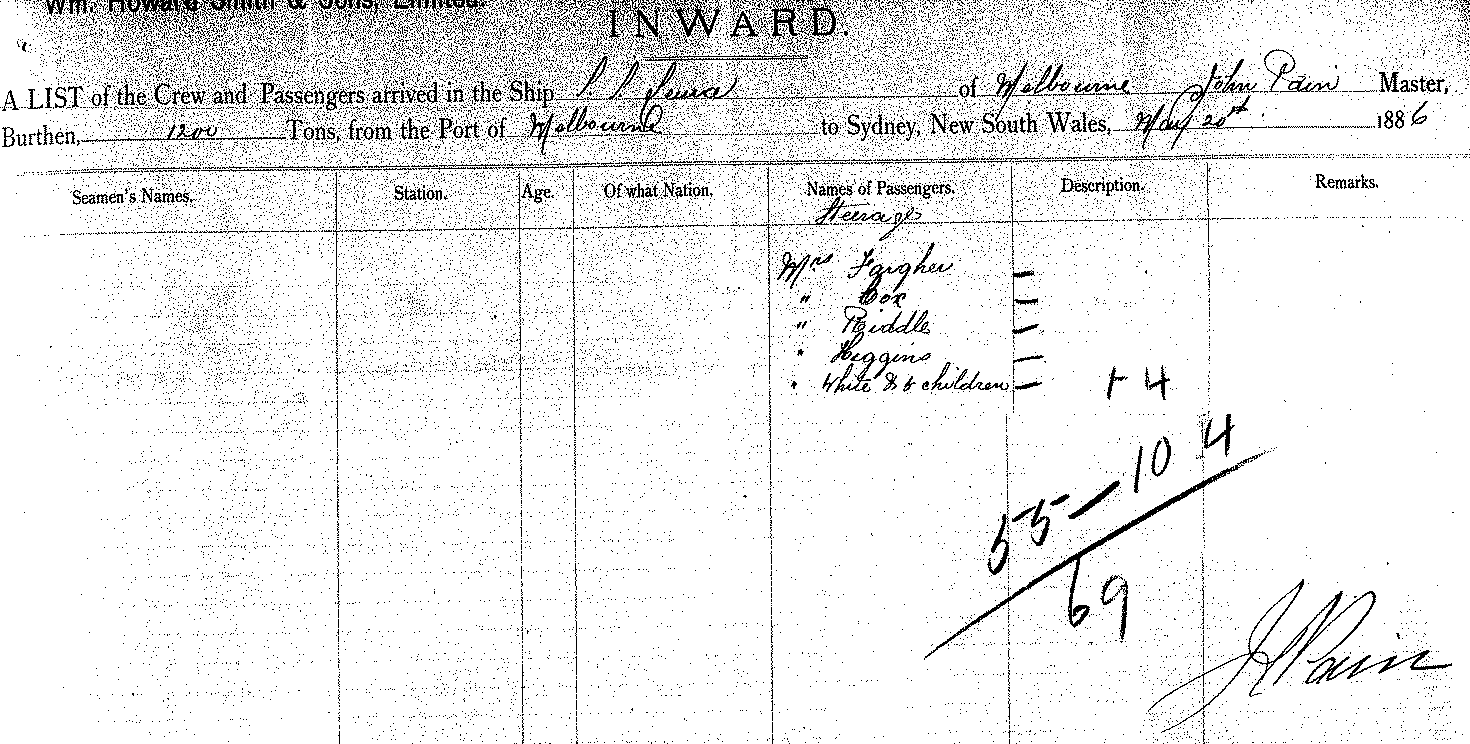 Wm. Howard Smith & Sons, Limited.
INWARD.
A LIST of the Crew and Passengers arrived in the Ship S. S. of Melbourne John Pain Master,
Burthen, 1200 Tons, from the Port of Melbourne to Sydney, New South Wales, May 20th 1886
Seamen's Names. Station. Age. Of what Nation. Names of Passengers. Description. Remarks.
Steerage
Mrs Fargher —
" Cox —
" Riddle —
" Higgins —
" White & children — + 4
55 — 10 4
69
J Pain